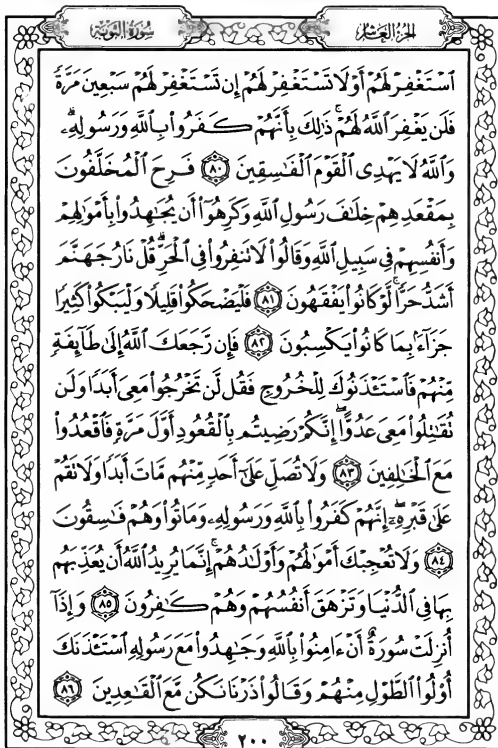 الجزء العاشر
سورة التوبة
ٱسْتَغْفِرْ لَهُمْ أَوْ لَا تَسْتَغْفِرْ لَهُمْ إِن تَسْتَغْفِرْ لَهُمْ سَبْعِينَ مَرَّةً
فَلَن يَغْفِرَ ٱللَّهُ لَهُمْ ۚ ذَٰلِكَ بِأَنَّهُمْ كَفَرُوا۟ بِٱللَّهِ وَرَسُولِهِۦ ۗ
وَٱللَّهُ لَا يَهْدِى ٱلْقَوْمَ ٱلْفَـٰسِقِينَ ﴿٨٠﴾ فَرِحَ ٱلْمُخَلَّفُونَ
بِمَقْعَدِهِمْ خِلَـٰفَ رَسُولِ ٱللَّهِ وَكَرِهُوٓا۟ أَن يُجَـٰهِدُوا۟ بِأَمْوَٰلِهِمْ
وَأَنفُسِهِمْ فِى سَبِيلِ ٱللَّهِ وَقَالُوا۟ لَا تَنفِرُوا۟ فِى ٱلْحَرِّ ۗ قُلْ نَارُ جَهَنَّمَ
أَشَدُّ حَرًّا ۚ لَّوْ كَانُوا۟ يَفْقَهُونَ ﴿٨١﴾ فَلْيَضْحَكُوا۟ قَلِيلًا وَلْيَبْكُوا۟ كَثِيرًا
جَزَآءًۢ بِمَا كَانُوا۟ يَكْسِبُونَ ﴿٨٢﴾ فَإِن رَّجَعَكَ ٱللَّهُ إِلَىٰ طَآئِفَةٍ
مِّنْهُمْ فَٱسْتَـْٔذَنُوكَ لِلْخُرُوجِ فَقُل لَّن تَخْرُجُوا۟ مَعِىَ أَبَدًا وَلَن
تُقَـٰتِلُوا۟ مَعِىَ عَدُوًّا ۖ إِنَّكُمْ رَضِيتُم بِٱلْقُعُودِ أَوَّلَ مَرَّةٍ فَٱقْعُدُوا۟
مَعَ ٱلْخَـٰلِفِينَ ﴿٨٣﴾ وَلَا تُصَلِّ عَلَىٰٓ أَحَدٍ مِّنْهُم مَّاتَ أَبَدًا وَلَا تَقُمْ
عَلَىٰ قَبْرِهِۦٓ ۖ إِنَّهُمْ كَفَرُوا۟ بِٱللَّهِ وَرَسُولِهِۦ وَمَاتُوا۟ وَهُمْ فَـٰسِقُونَ
﴿٨٤﴾ وَلَا تُعْجِبْكَ أَمْوَٰلُهُمْ وَأَوْلَـٰدُهُمْ ۚ إِنَّمَا يُرِيدُ ٱللَّهُ أَن يُعَذِّبَهُم
بِهَا فِى ٱلدُّنْيَا وَتَزْهَقَ أَنفُسُهُمْ وَهُمْ كَـٰفِرُونَ ﴿٨٥﴾ وَإِذَآ
أُنزِلَتْ سُورَةٌ أَنْ ءَامِنُوا۟ بِٱللَّهِ وَجَـٰهِدُوا۟ مَعَ رَسُولِهِ ٱسْتَـْٔذَنَكَ
أُو۟لُوا۟ ٱلطَّوْلِ مِنْهُمْ وَقَالُوا۟ ذَرْنَا نَكُن مَّعَ ٱلْقَـٰعِدِينَ ﴿٨٦﴾
٢٠٠